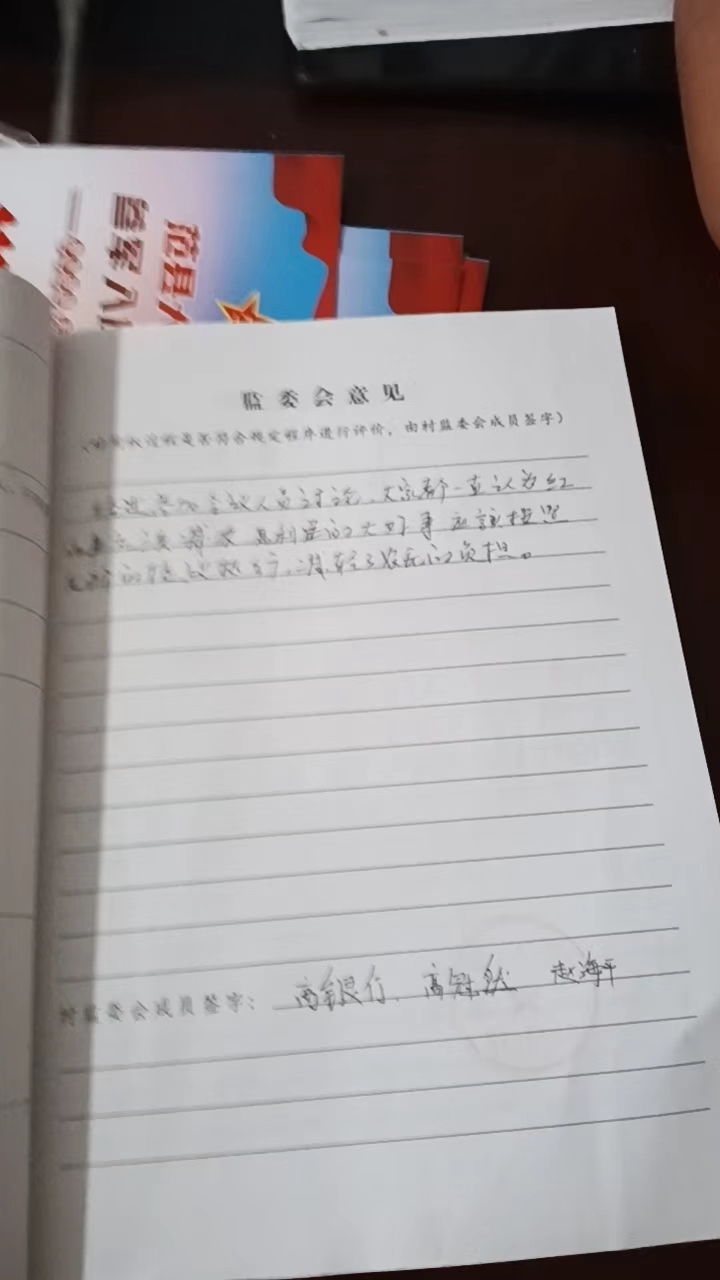 范县人
参军入
监委会意见
是否符合规定程序进行评价，由村监委会成员签字）
经过参加会议人员讨论，大家都一直认为红
是利民的大好事应该按照
的决议执行，减轻了农民的负担。
村监委会成员签字：高银行、高冠然 赵海平